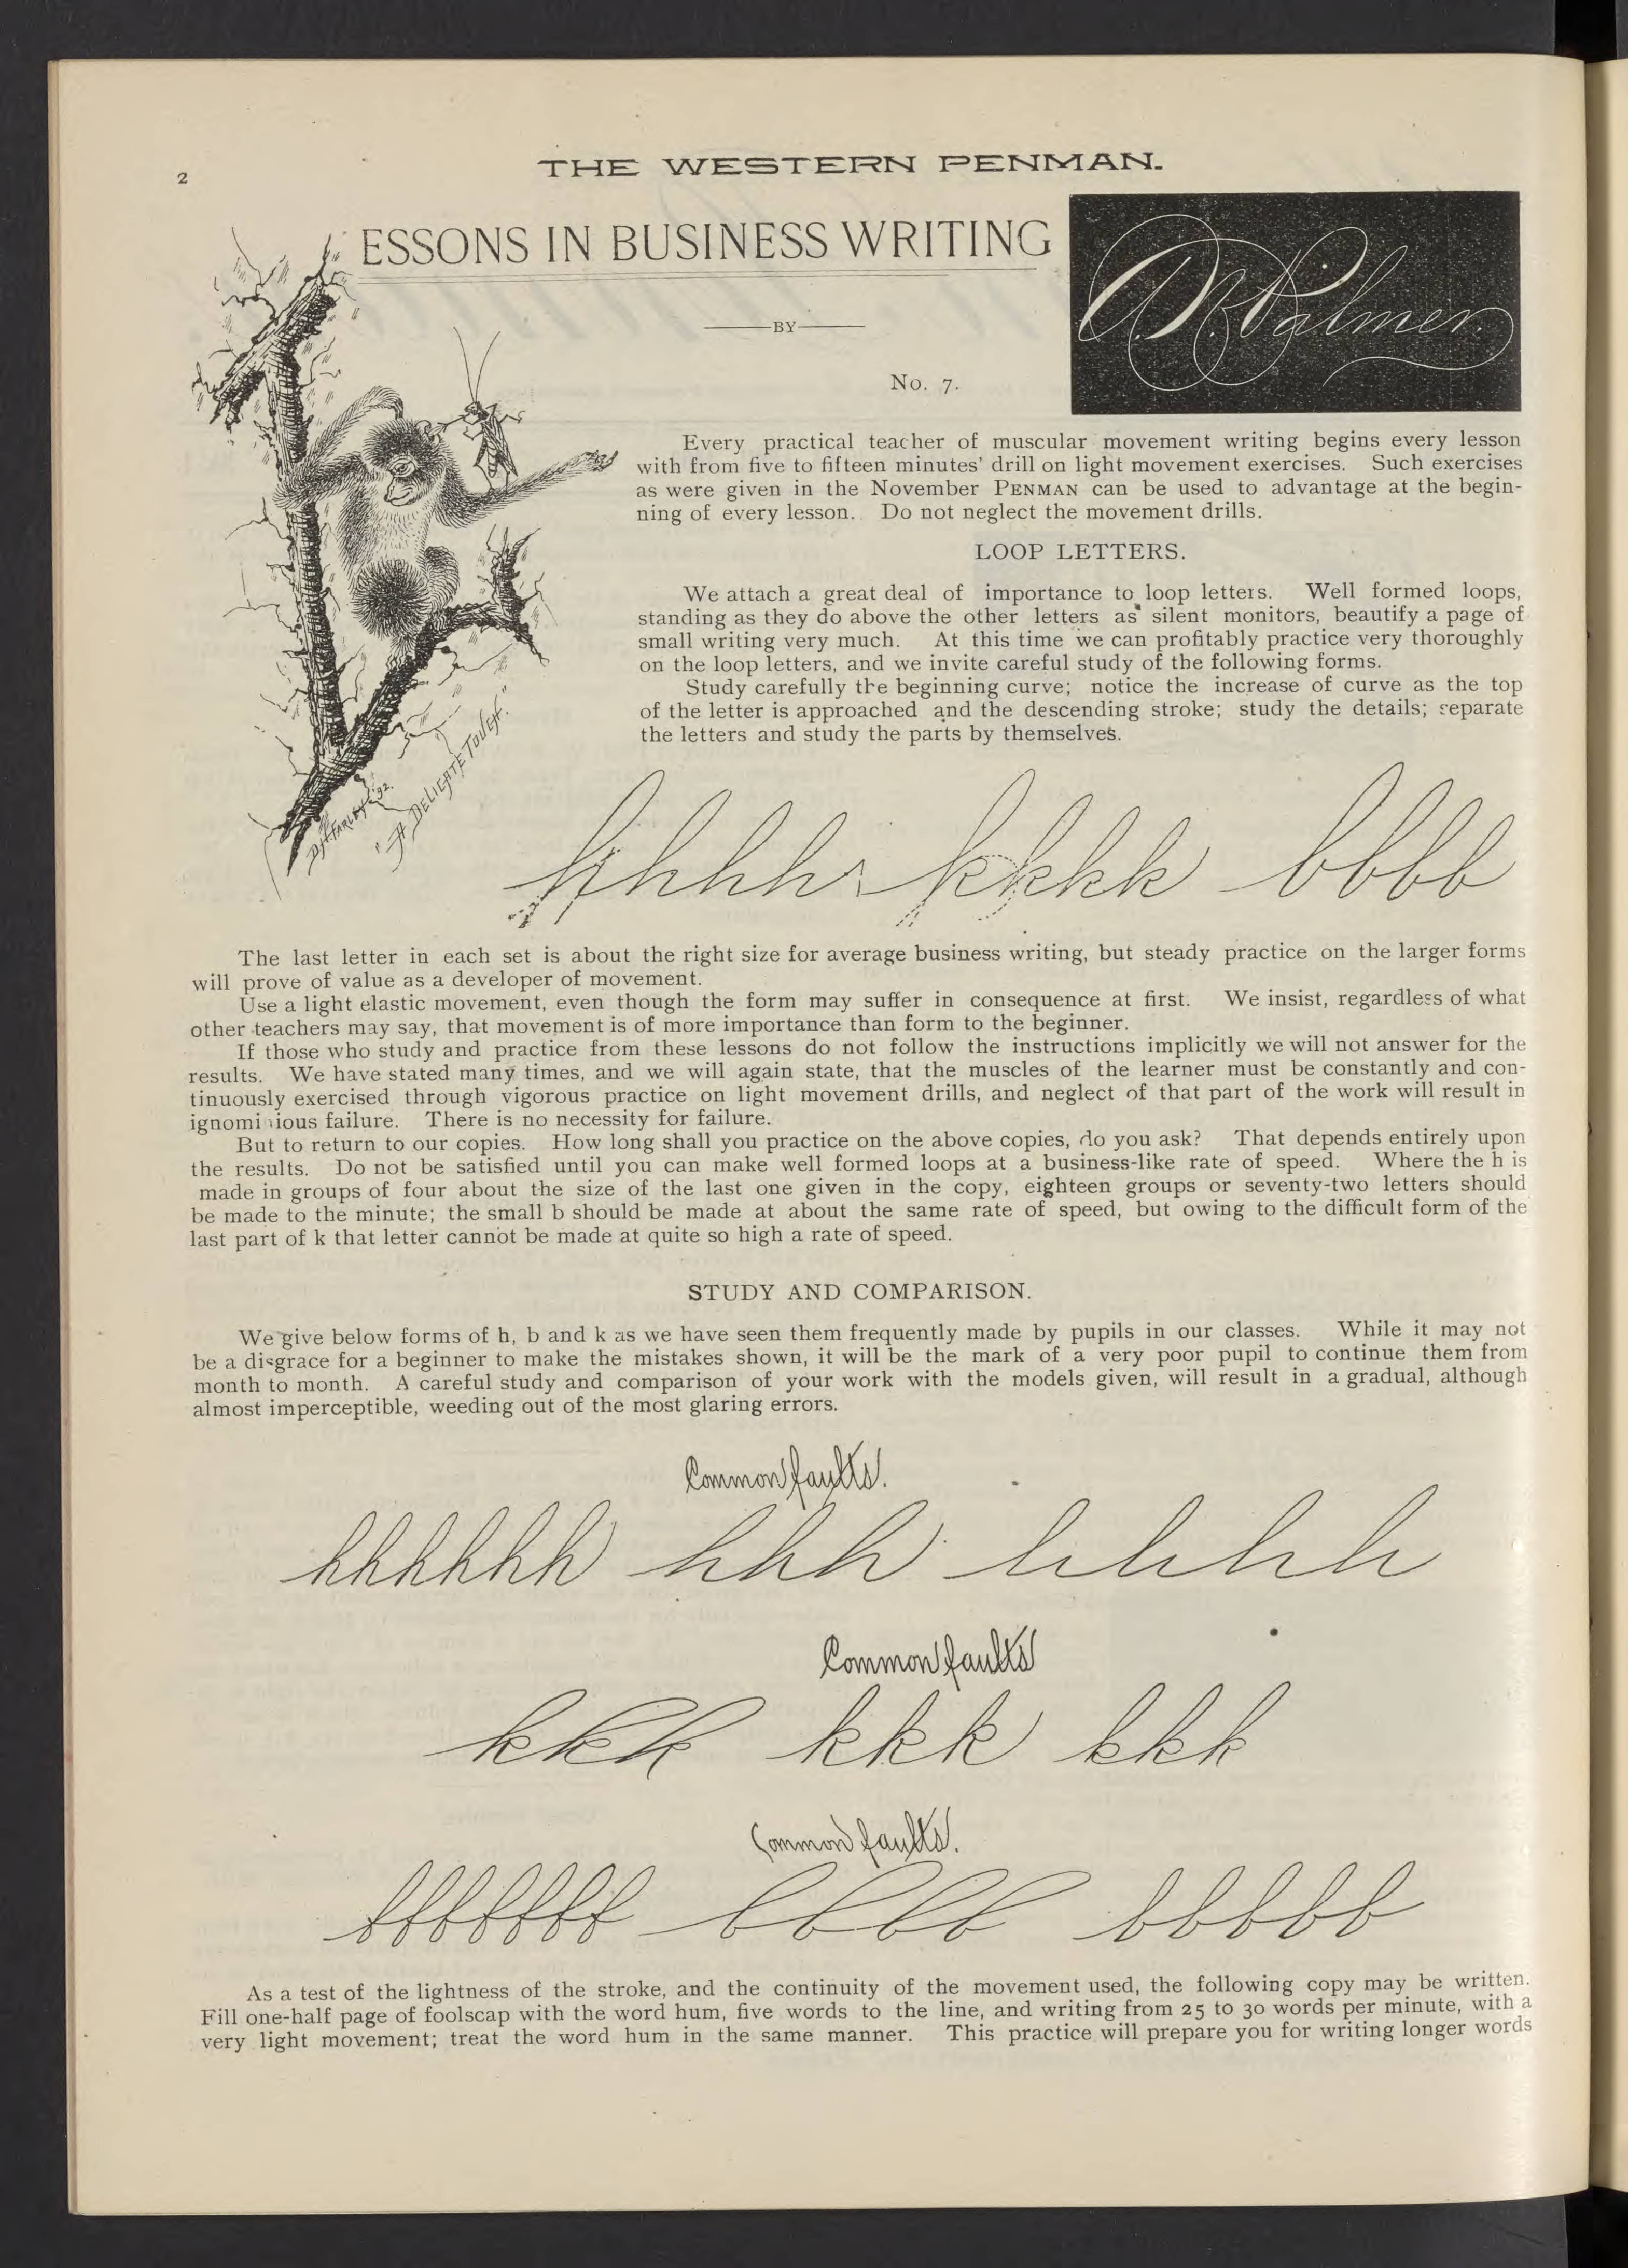 2
THE WESTERN PENMAN.
ESSONS IN BUSINESS WRITING
BY
A. N. Palmer.
No. 7.
Every practical teacher of muscular movement writing begins every lesson
with from five to fifteen minutes' drill on light movement exercises. Such exercises
as were given in the November PENMAN can be used to advantage at the begin-
ning of every lesson. Do not neglect the movement drills.
LOOP LETTERS.
We attach a great deal of importance to loop letters. Well formed loops,
standing as they do above the other letters as silent monitors, beautify a page of
small writing very much. At this time we can profitably practice very thoroughly
on the loop letters, and we invite careful study of the following forms.
Study carefully the beginning curve; notice the increase of curve as the top
of the letter is approached and the descending stroke; study the details; separate
the letters and study the parts by themselves.
D. H. FARLEY '92
"A DELICATE TOUCH."
hhhh kkkk bbbb
The last letter in each set is about the right size for average business writing, but steady practice on the larger forms
will prove of value as a developer of movement.
Use a light elastic movement, even though the form may suffer in consequence at first. We insist, regardless of what
other teachers may say, that movement is of more importance than form to the beginner.
If those who study and practice from these lessons do not follow the instructions implicitly we will not answer for the
results. We have stated many times, and we will again state, that the muscles of the learner must be constantly and con-
tinuously exercised through vigorous practice on light movement drills, and neglect of that part of the work will result in
ignominious failure. There is no necessity for failure.
But to return to our copies. How long shall you practice on the above copies, do you ask? That depends entirely upon
the results. Do not be satisfied until you can make well formed loops at a business-like rate of speed. Where the h is
made in groups of four about the size of the last one given in the copy, eighteen groups or seventy-two letters should
be made to the minute; the small b should be made at about the same rate of speed, but owing to the difficult form of the
last part of k that letter cannot be made at quite so high a rate of speed.
STUDY AND COMPARISON.
We give below forms of h, b and k as we have seen them frequently made by pupils in our classes. While it may not
be a disgrace for a beginner to make the mistakes shown, it will be the mark of a very poor pupil to continue them from
month to month. A careful study and comparison of your work with the models given, will result in a gradual, although
almost imperceptible, weeding out of the most glaring errors.
Common faults.
hhhhhh hhh hhhh
Common faults
kkk kkk kkk
Common faults.
bbbbbbb bbbb bbbbb
As a test of the lightness of the stroke, and the continuity of the movement used, the following copy may be written.
Fill one-half page of foolscap with the word hum, five words to the line, and writing from 25 to 30 words per minute, with a
very light movement; treat the word hum in the same manner. This practice will prepare you for writing longer words